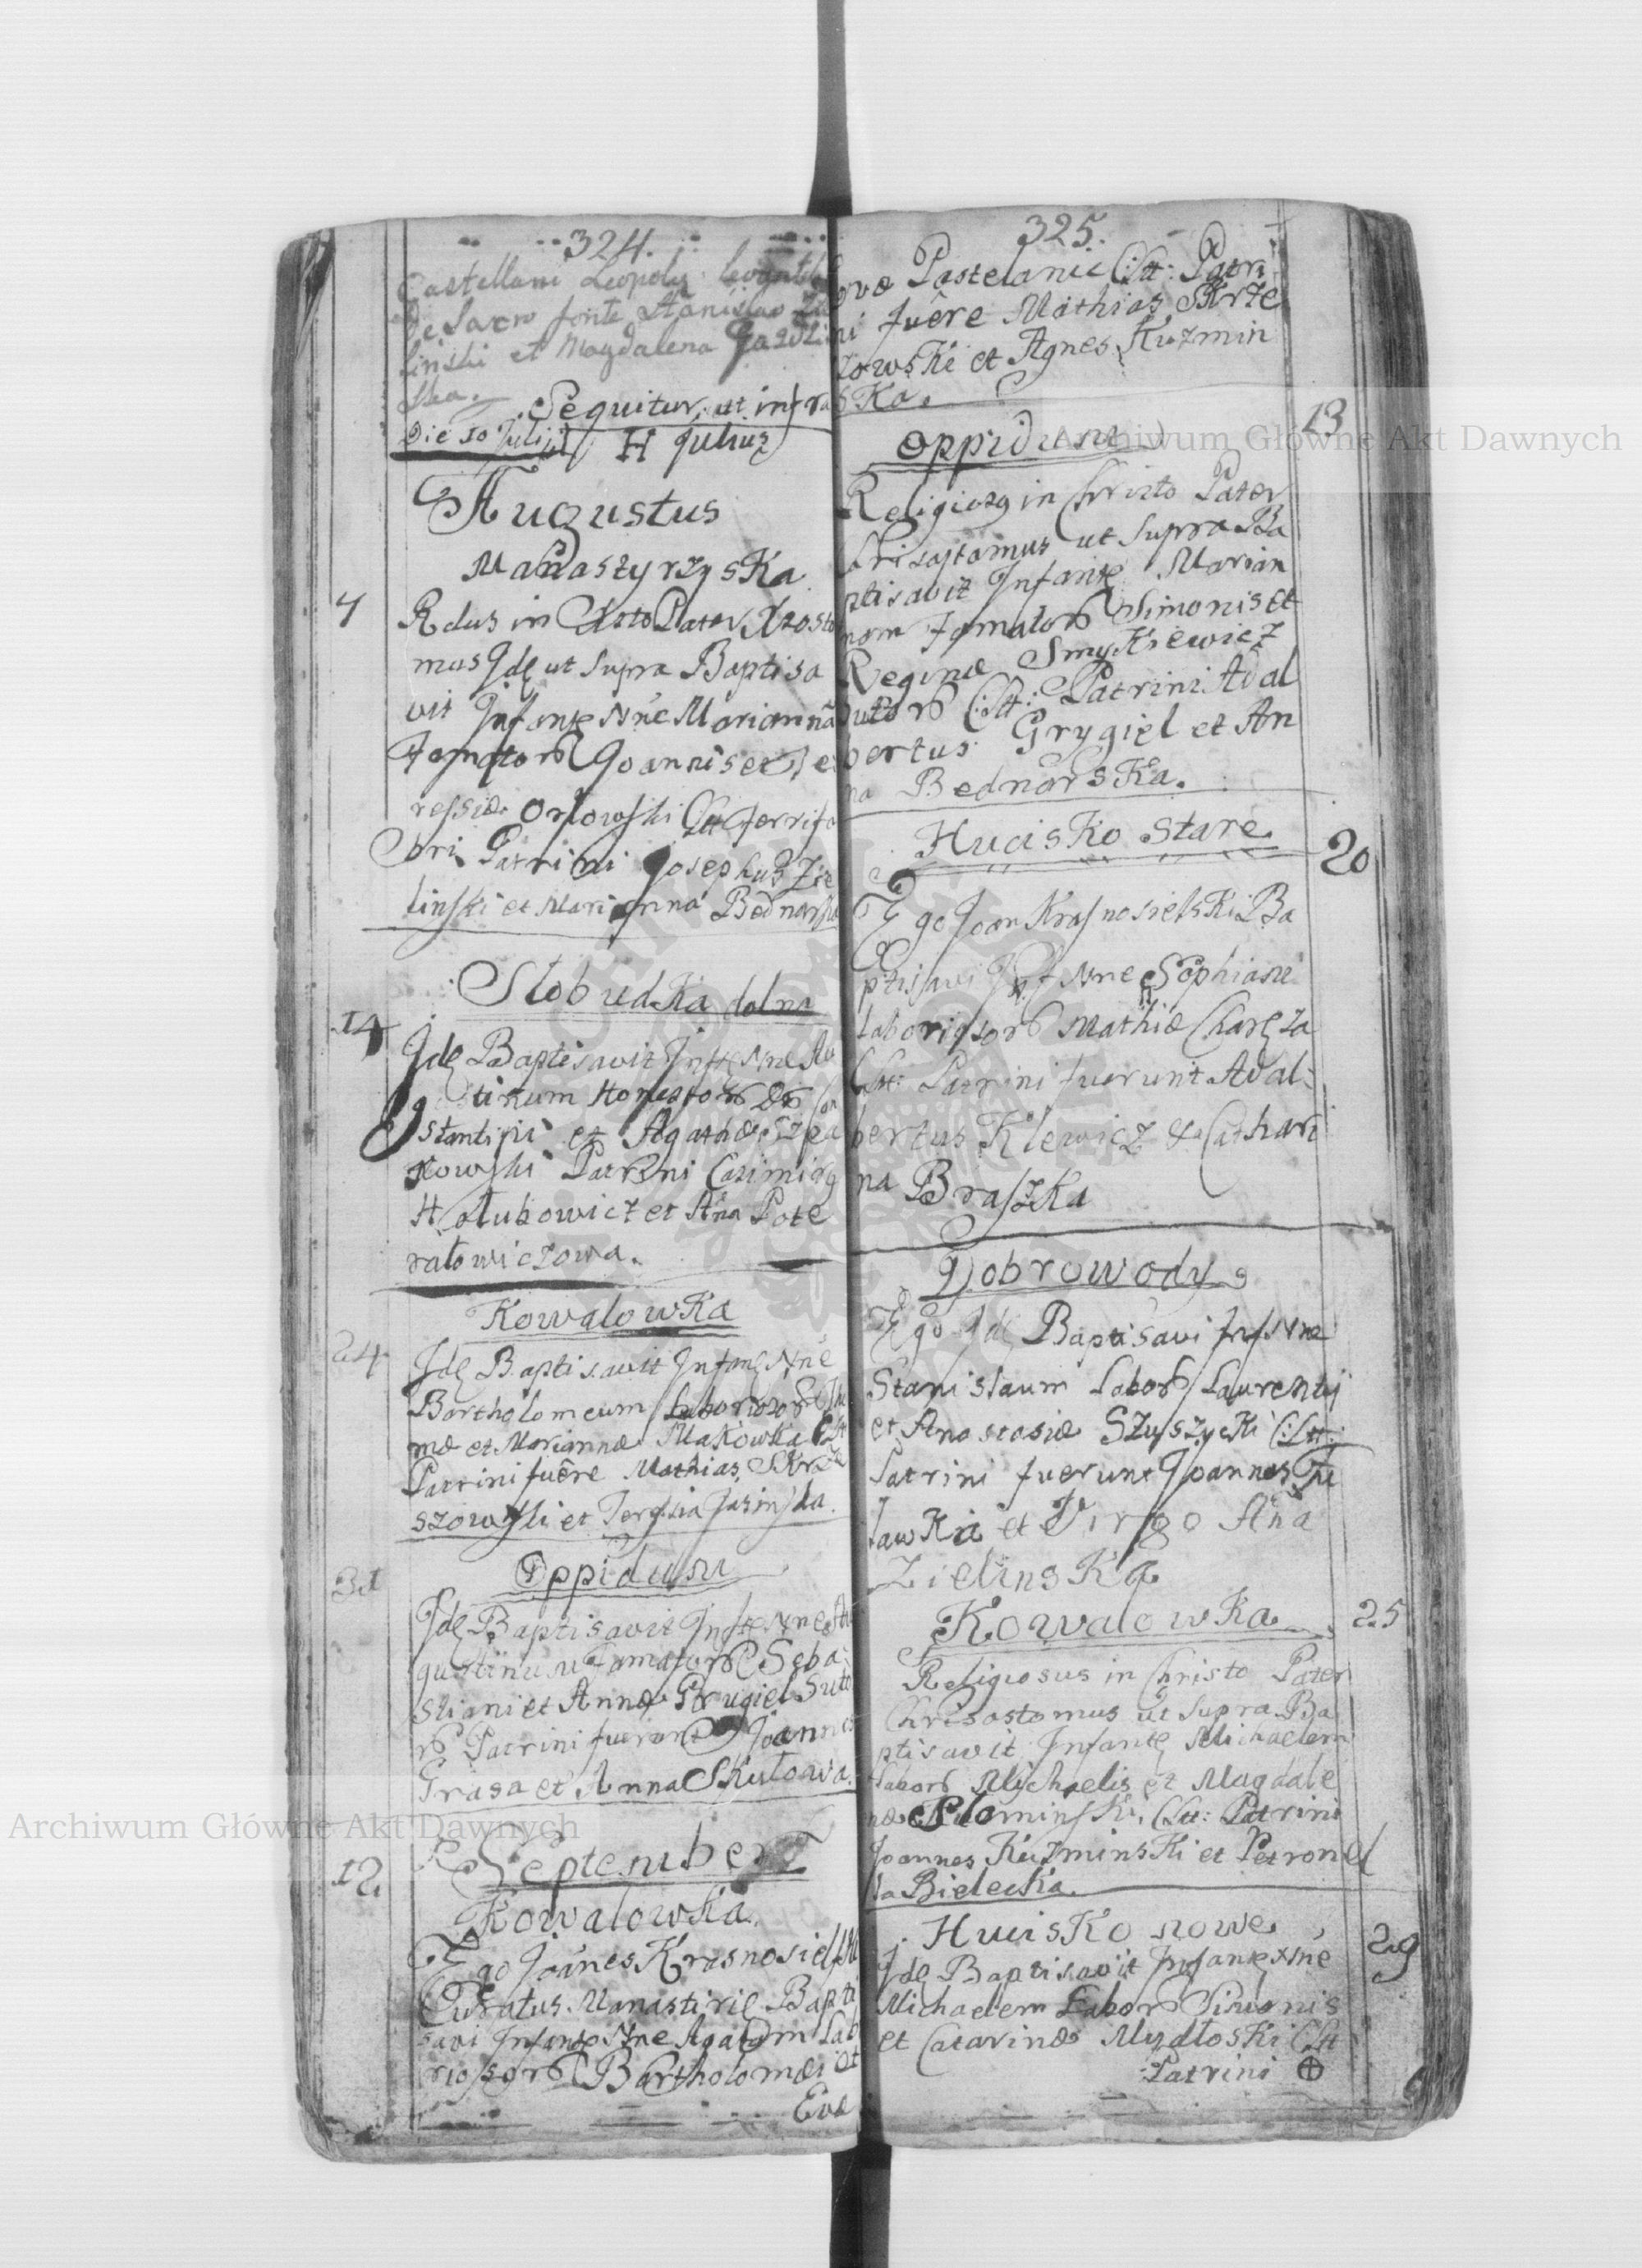 324.
Castellani Leopolz: levantib
De Sacro fonte Stanislao Zie
linski et Magdalena
ska.
Sequitur, ut infra
Die 10 Julij H Julius
Augustus
Manaszyrzyska
7
Rdus in Christo Pater Xzosto
mus Jdę ut supra Baptisa
vit Jnfantę Nne Mariannã
Famator Joannis et Te
ressiæ Orłowski Ctt Ferrifa
bri Patrini Josephus Zie
linski et Marianna Bednarska
Słobudka dolna
14
Jdę Baptisavit Jnftę Nne Au
gustinum Honestor DD Con
stantini et Agathæ Szpa
kowski Patrini Casimirg
Hołubowicz et Ana Pote
rałowiczowa.
Kowalowka
24
Jdę Baptisavit Jnfanę Nne
Bartholomeum Laboriosor Tho
mæ et Mariannæ Makowka Ctt
Patrini fuêre Mathias Skrze
szowski et Teressia Jasinska.
Oppidum
31
Jdę Baptisavit Jnftę Nne Au
gustinum Famator Seba:
stiani et Annæ Grugiel Suto
r Patrini fuerunt Joannes
Grasa et Anna Skutowa.
September
12
Kowalowka.
Ego Joánes Krasnosielski
Curatus Manastirię Bapti
savi Jnfantę Nne Agatam Lab
riosor Bartholomæi et
Evæ
325.
ovæ Pastelanic Ctt: Patri
ni fuêre Mathias Skrze
szowski et Agnes Kuzmin
ska.
Oppidum
13
Religiosg in Christo Pater
Crisostomus ut supra Ba
ptisavit Jnfantę Marian
nam Famator Simonis et
Reginæ Smykiewicz
Sutor Ctt: Patrini Adal
bertus Grygiel et An
na Bednarska.
Hucisko Stare
20
Ego Joan Krasnosielski Ba
ptisavi Jnf Nne Sophiam
laboriosor Mathiæ Charęza
Ctt: Patrini fuerunt Adal:
bertus Klewicz & Cathari
na Braszka
Dobrowody
Ego Jdę Baptisavi Jnf Nne
Stanislaum Labor Laurentij
et Anastasiæ Szuszycki Ctt:
Patrini fuerunt Joannes Tu
ławka et Virgo Ana
Zielinska
Kowalowka
25
Religiosus in Christo Pater
Chrisostomus ut supra Ba
ptisavit Jnfantę Michaelem
Labor Michaelis et Magdale
næ Słominski, Ctt: Patrini
Joannes Kuzminski et Petronel
la Bielecka.
Hucisko nowe
29
Jdę Baptisavit Jnfantę Nne
Michaelem Labor Simonis
et Catarinæ Mydłoski Ctt
Patrini
Archiwum Główne Akt Dawnych
Archiwum Główne Akt Dawnych